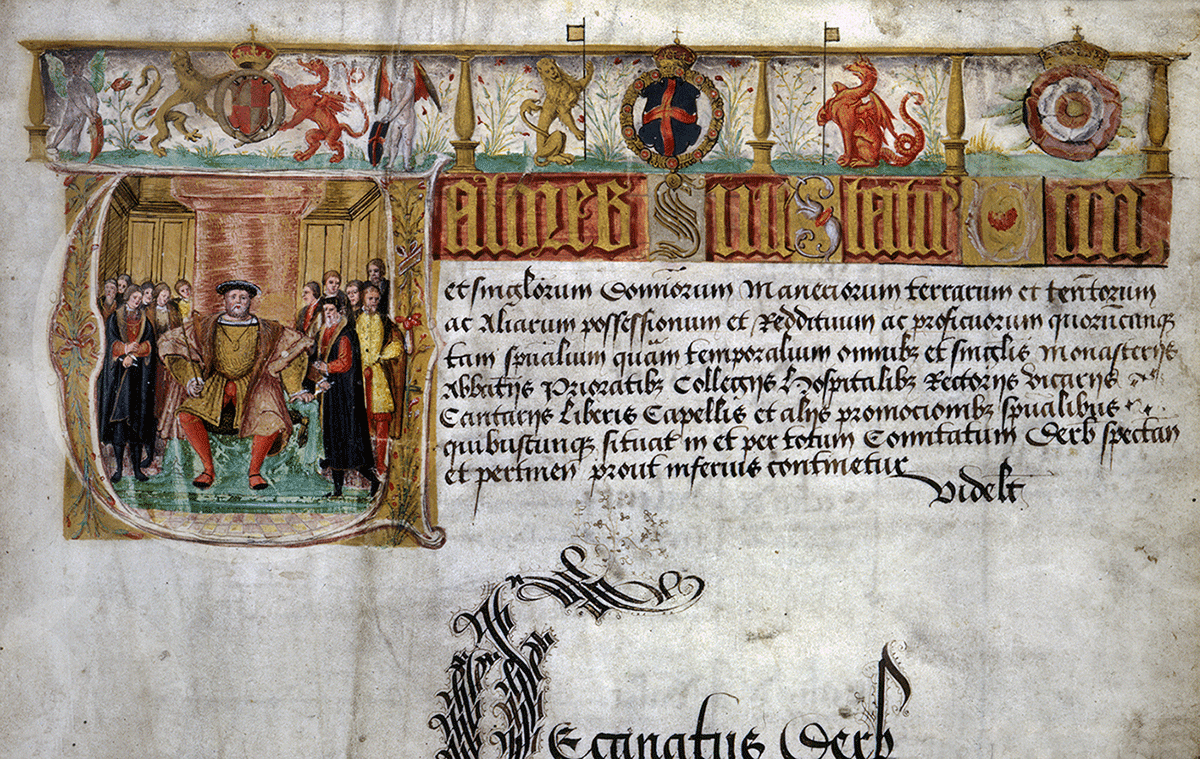 Valores Sive Status Omniu
et singlorum Dominiorum Maneriorum terrarum et tentorum
ac Aliarum possessionum et Reddituum ac proficuorum quorumcunqz
tam spualium quam temporalium omnibz et singlis Monasterijs
Abbatijs Prioratibz Collegijs Hospitalibz Rectorijs Vicarijs
Cantarijs Liberis Capellis et alijs promocionibz spualibus
quibuscunqz situat in et per totum Comitatum Derb spectan
et pertinen prout inferius continetur
Videlt
Decanatus Derb